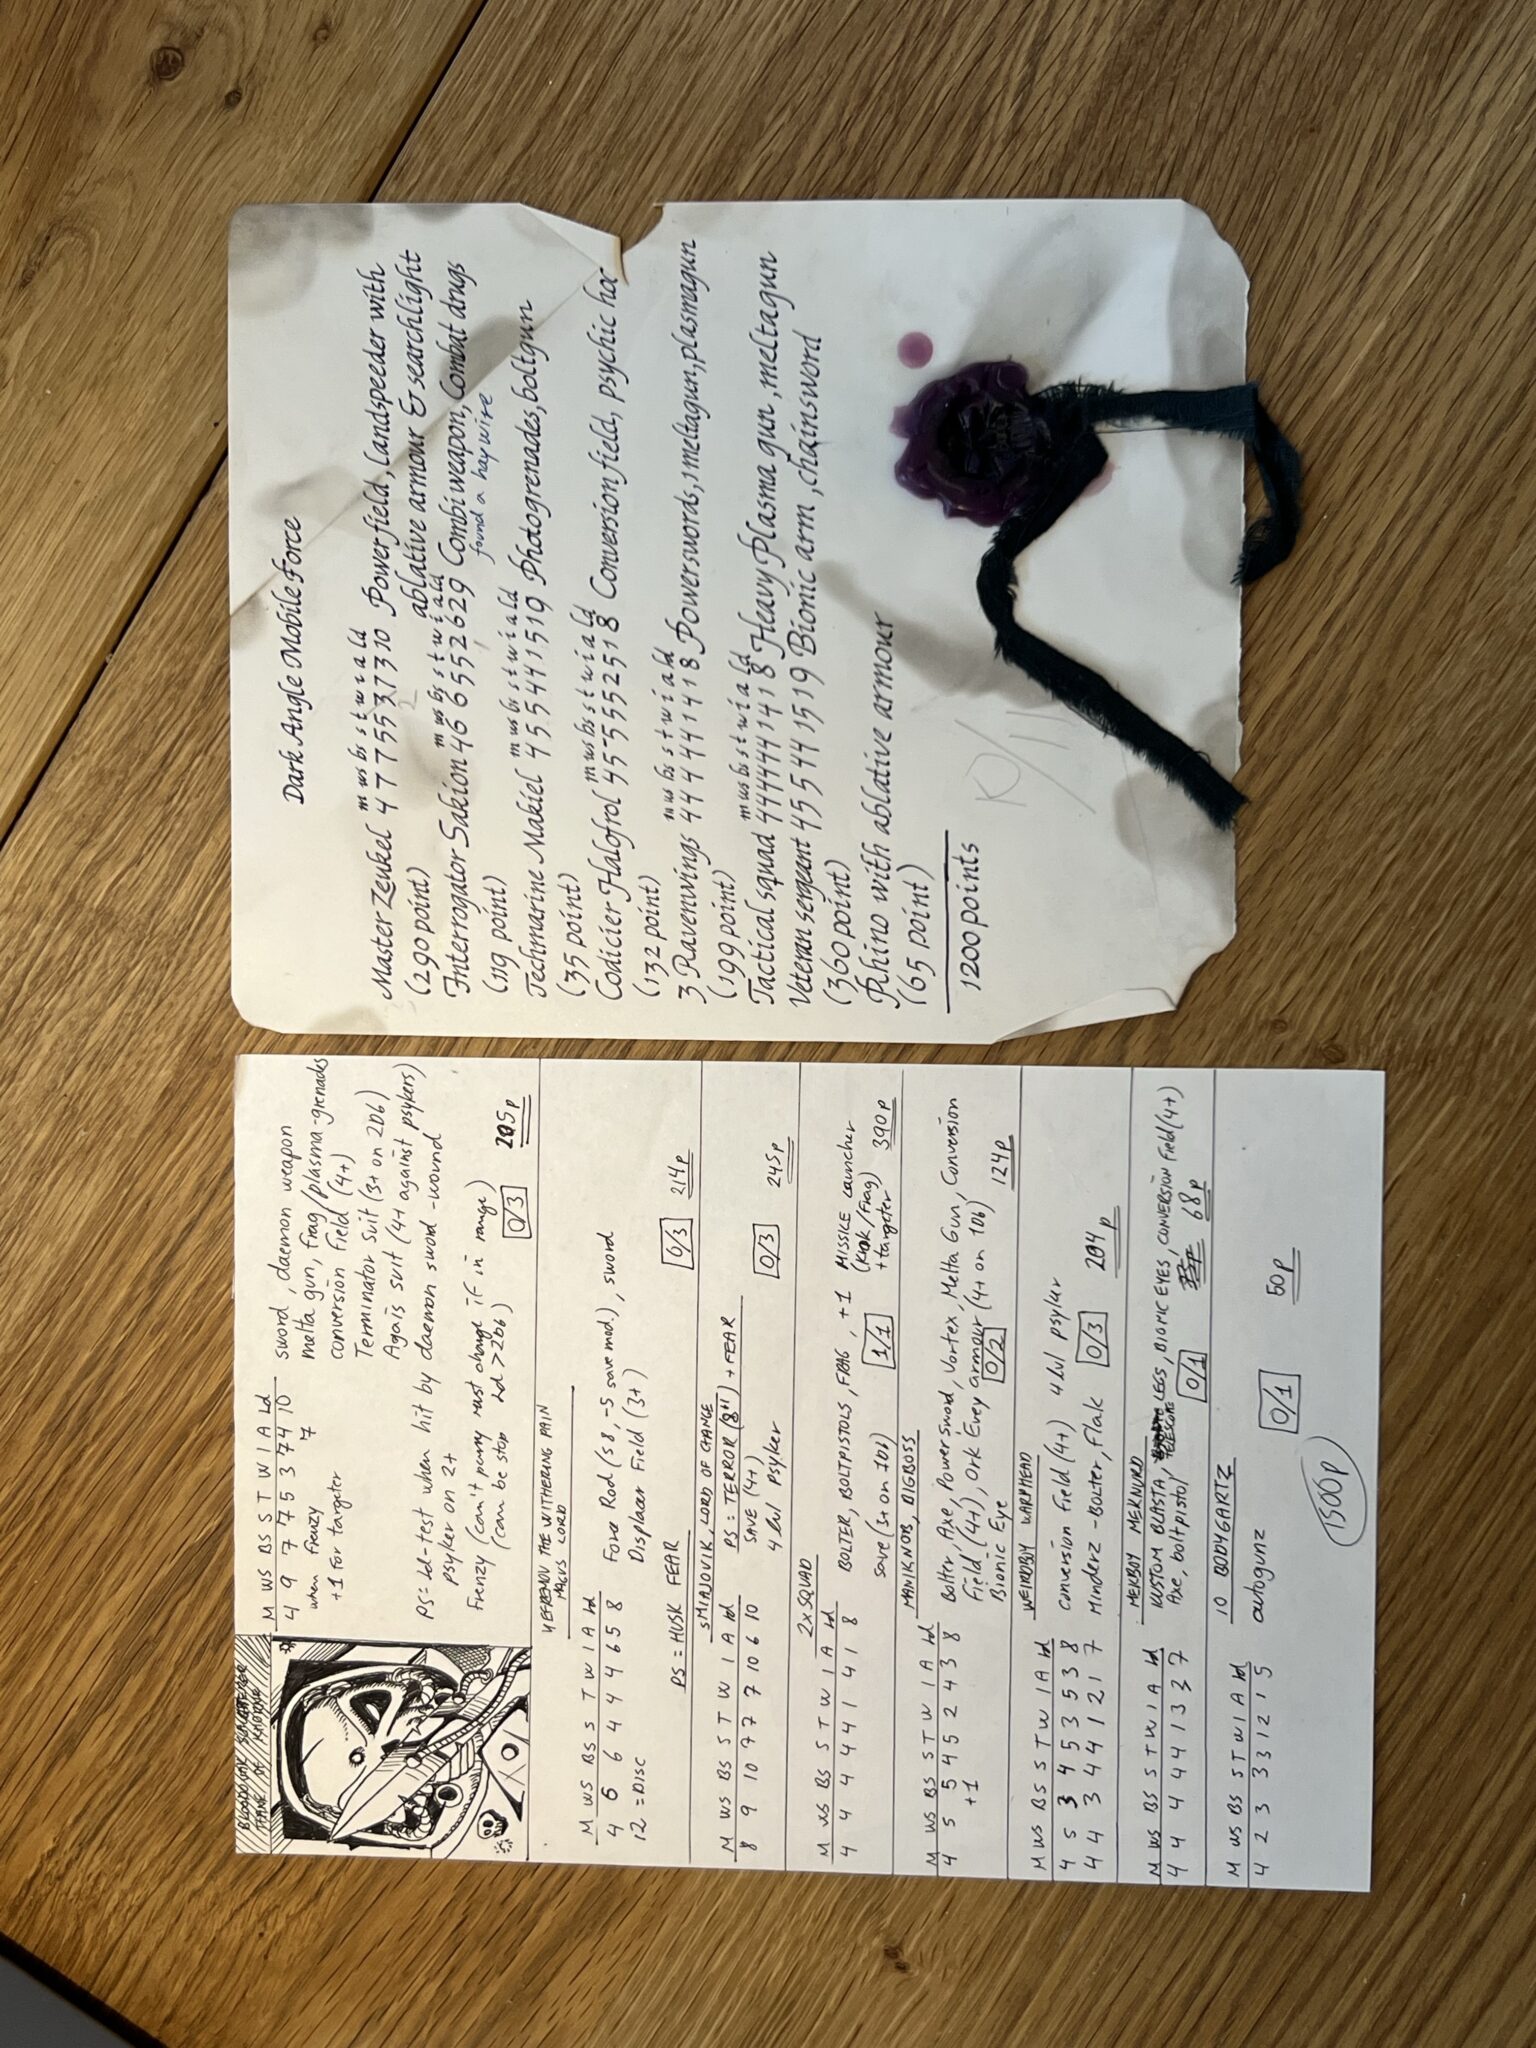 BLOODSOAK SLAUGHTERER
THANE OF KHORNE
M WS BS S T W I A Ld
4 9 7 7 5 3 7 4 10
when frenzy 7
+1 for targeter
sword, daemon weapon
melta gun, frag/plasma-grenads
conversion field (4+)
Terminator Suit (3+ on 2D6)
Agais suit (4+ against psykers)
PS= Ld-test when hit by daemon sword -wound
psyker on 2+
Frenzy (can't parry must charge if in range)
(can be stop Ld > 2D6)
0/3
205p
YEFREMOV THE WITHERING PAIN
MAGUS LORD
M WS BS S T W I A Ld
4 6 6 4 4 4 6 5 8
12 = DISC
Force Rod (S8, -5 save mod.), sword
Displacer Field (3+)
PS = HUSK FEAR
0/3
214p
SMIAJOVIK, LORD OF CHANGE
M WS BS S T W I A Ld
8 9 10 7 7 7 10 6 10
PS: TERROR (8"!) + FEAR
SAVE (4+)
4 lvl Psyker
0/3
245p
2x SQUAD
M WS BS S T W I A Ld
4 4 4 4 4 1 4 1 8
BOLTER, BOLTPISTOLS, FRAG, +1 MISSILE LAUNCHER
(Krak/Frag)
+targeter
save (3+ on 1D6)
1/1
390p
MANIKNOB, BIGBOSS
M WS BS S T W I A Ld
4 5 5 4 5 2 4 3 8
+1
Bolter, Axe, Power Sword, Vortex, Melta Gun, Conversion
Field (4+), Ork Evey armour (4+ on 1D6)
Bionic Eye
0/2
124p
WEIRDBOY WARPHEAD
M WS BS S T W I A Ld
4 5 3 4 5 3 5 3 8
4 4 3 4 4 1 2 1 7
Conversion Field (4+) 4 lvl psyker
Minderz -Bolter, Flak
0/3
204p
MEKBOY MEKNURD
M WS BS S T W I A Ld
4 4 4 4 4 1 3 3 7
KUSTOM BLASTA, TELESCOPIC LEGS, BIONIC EYES, CONVERSION Field (4+)
Axe, boltpistol
0/1
68p
10 BODYGARTZ
M WS BS S T W I A Ld
4 2 3 3 3 1 2 1 5
autogunz
0/1
50p
1500p
Dark Angle Mobile Force
m ws bs s t w i a ld
Master Zeukel 4 7 7 5 5 3 7 3 10 Powerfield, landspeeder with
(290 point) ablative armour & searchlight
m ws bs s t w i a ld
Interrogator Sakion 4 6 6 5 5 2 6 2 9 Combi weapon, Combat drugs
found a haywire
(119 point)
m ws bs s t w i a ld
Techmarine Makiel 4 5 5 4 4 1 5 1 9 Photogrenades, boltgun
(35 point)
m ws bs s t w i a ld
Codicier Halofrol 4 5 5 5 5 2 5 1 8 Conversion field, psychic ho
(132 point)
m ws bs s t w i a ld
3 Ravenwings 4 4 4 4 4 1 4 1 8 Powerswords, 1 meltagun, plasmagun
(199 point)
m ws bs s t w i a ld
Tactical squad 4 4 4 4 4 1 4 1 8 Heavy Plasma gun, meltagun
Veteran sergeant 4 5 5 4 4 1 5 1 9 Bionic arm, chainsword
(360 point)
Rhino with ablative armour
(65 point)
1200 points